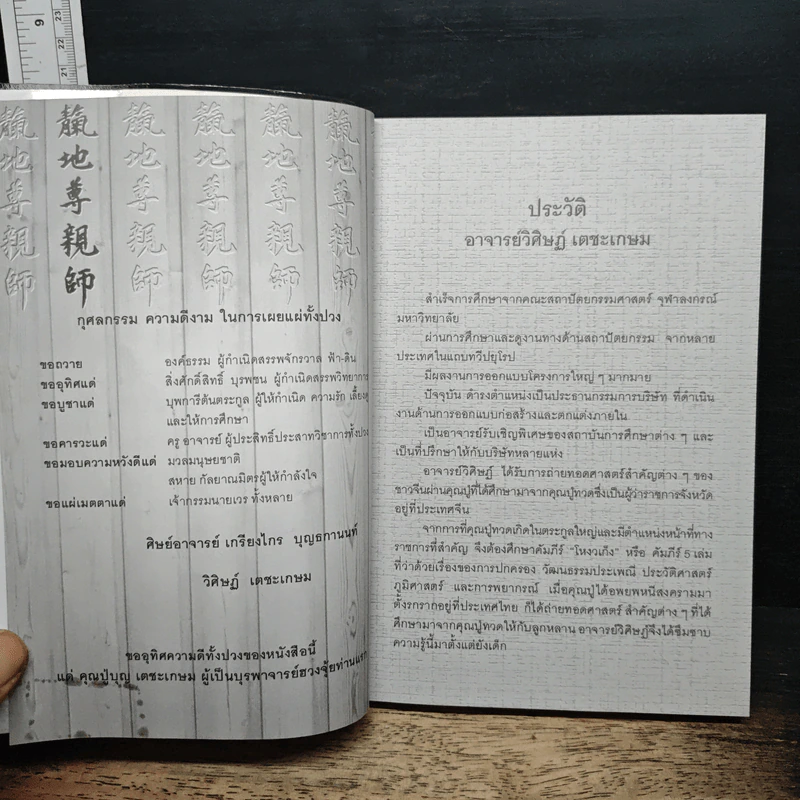 9
23
22
21
靝 靝 靝 靝 靝 靝
地 地 地 地 地 地
尊 尊 尊 尊 尊 尊
親 親 親 親 親 親
師 師 師 師 師 師
กุศลกรรม ความดีงาม ในการเผยแผ่ทั้งปวง
ขอถวาย องค์ธรรม ผู้กำเนิดสรรพจักรวาล ฟ้า-ดิน
ขออุทิศแด่ สิ่งศักดิ์สิทธิ์ บุรพชน ผู้กำเนิดสรรพวิทยาการ
ขอบูชาแด่ บุพการีต้นตระกูล ผู้ให้กำเนิด ความรัก เลี้ยงดู
และให้การศึกษา
ขอคารวะแด่ ครู อาจารย์ ผู้ประสิทธิ์ประสาทวิชาการทั้งปวง
ขอมอบความหวังดีแด่ มวลมนุษยชาติ
สหาย กัลยาณมิตรผู้ให้กำลังใจ
ขอแผ่เมตตาแด่ เจ้ากรรมนายเวร ทั้งหลาย
ศิษย์อาจารย์ เกรียงไกร บุญธกานนท์
วิศิษฏ์ เตชะเกษม
ขออุทิศความดีทั้งปวงของหนังสือนี้
แด่ คุณปู่บุญ เตชะเกษม ผู้เป็นบุรพาจารย์ฮวงจุ้ยท่านแรก
ประวัติ
อาจารย์วิศิษฏ์ เตชะเกษม
สำเร็จการศึกษาจากคณะสถาปัตยกรรมศาสตร์ จุฬาลงกรณ์
มหาวิทยาลัย
ผ่านการศึกษาและดูงานทางด้านสถาปัตยกรรม จากหลาย
ประเทศในแถบทวีปยุโรป
มีผลงานการออกแบบโครงการใหญ่ ๆ มากมาย
ปัจจุบัน ดำรงตำแหน่งเป็นประธานกรรมการบริษัท ที่ดำเนิน
งานด้านการออกแบบก่อสร้างและตกแต่งภายใน
เป็นอาจารย์รับเชิญพิเศษของสถาบันการศึกษาต่าง ๆ และ
เป็นที่ปรึกษาให้กับบริษัทหลายแห่ง
อาจารย์วิศิษฏ์ ได้รับการถ่ายทอดศาสตร์สำคัญต่าง ๆ ของ
ชาวจีนผ่านคุณปู่ที่ได้ศึกษามาจากคุณปู่ทวดซึ่งเป็นผู้ว่าราชการจังหวัด
อยู่ที่ประเทศจีน
จากการที่คุณปู่ทวดเกิดในตระกูลใหญ่และมีตำแหน่งหน้าที่ทาง
ราชการที่สำคัญ จึงต้องศึกษาคัมภีร์ "โหงวเก็ง" หรือ คัมภีร์ 5 เล่ม
ที่ว่าด้วยเรื่องของการปกครอง วัฒนธรรมประเพณี ประวัติศาสตร์
ภูมิศาสตร์ และการพยากรณ์ เมื่อคุณปู่ได้อพยพหนีสงครามมา
ตั้งรกรากอยู่ที่ประเทศไทย ก็ได้ถ่ายทอดศาสตร์ สำคัญต่าง ๆ ที่ได้
ศึกษามาจากคุณปู่ทวดให้กับลูกหลาน อาจารย์วิศิษฏ์จึงได้ซึมซาบ
ความรู้นี้มาตั้งแต่ยังเด็ก